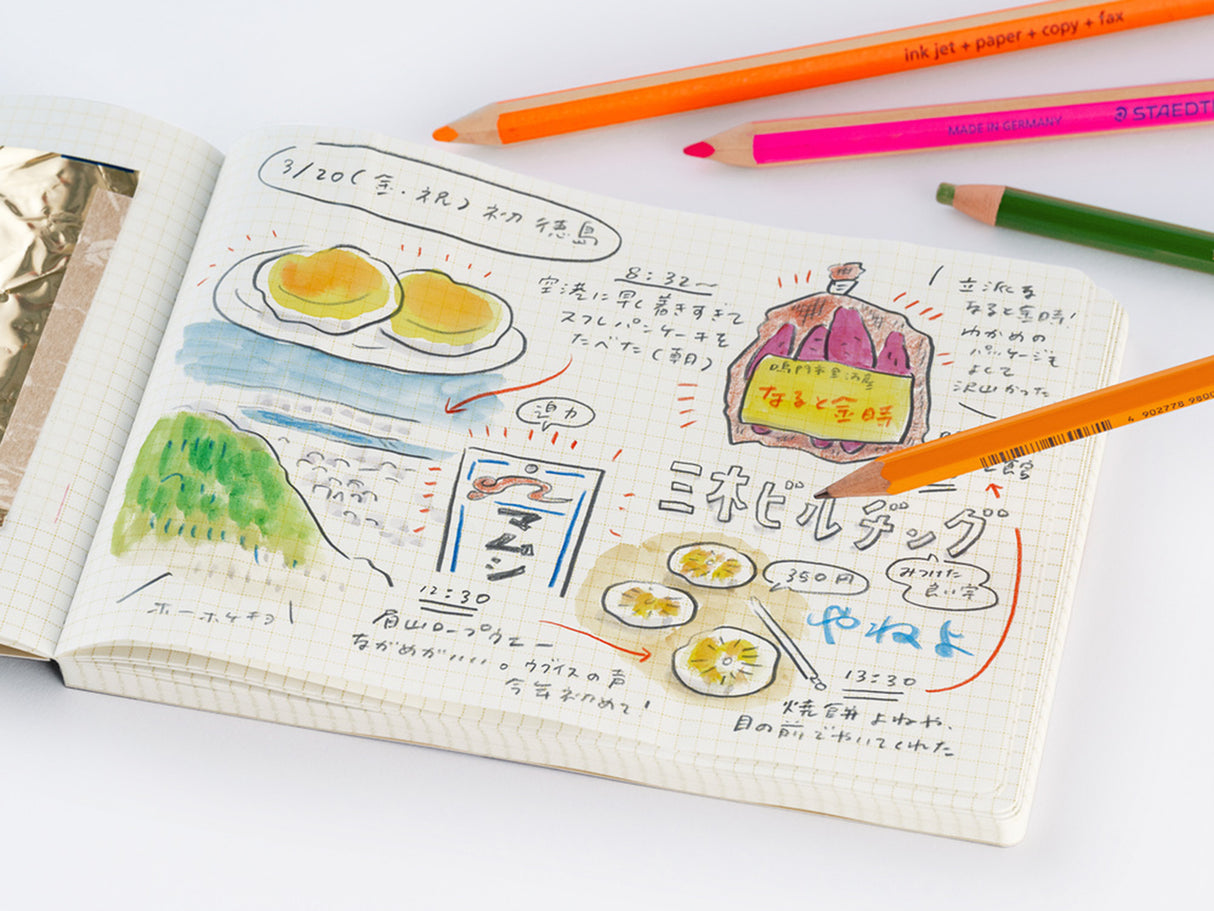 ink jet + paper + copy + fax
MADE IN GERMANY STAEDT
3/20(金・祝) 初 徳島
8:32〜
空港に早く着きすぎて
スフレパンケーキを
たべた(朝)
立派な
なると金時!
わかめの
パッケージも
よくて
沢山かった
鳴門市里浦産
なると金時
4 902778 9800
迫力
マムシ
三木ビルヂング
みつけた
良い字
350円
やねよ
ホーホケキョ
12:30
眉山ロープウェー
ながめがいい。ウグイスの声
今年初めて!
13:30
焼餅 よねや、
目の前でやいてくれた